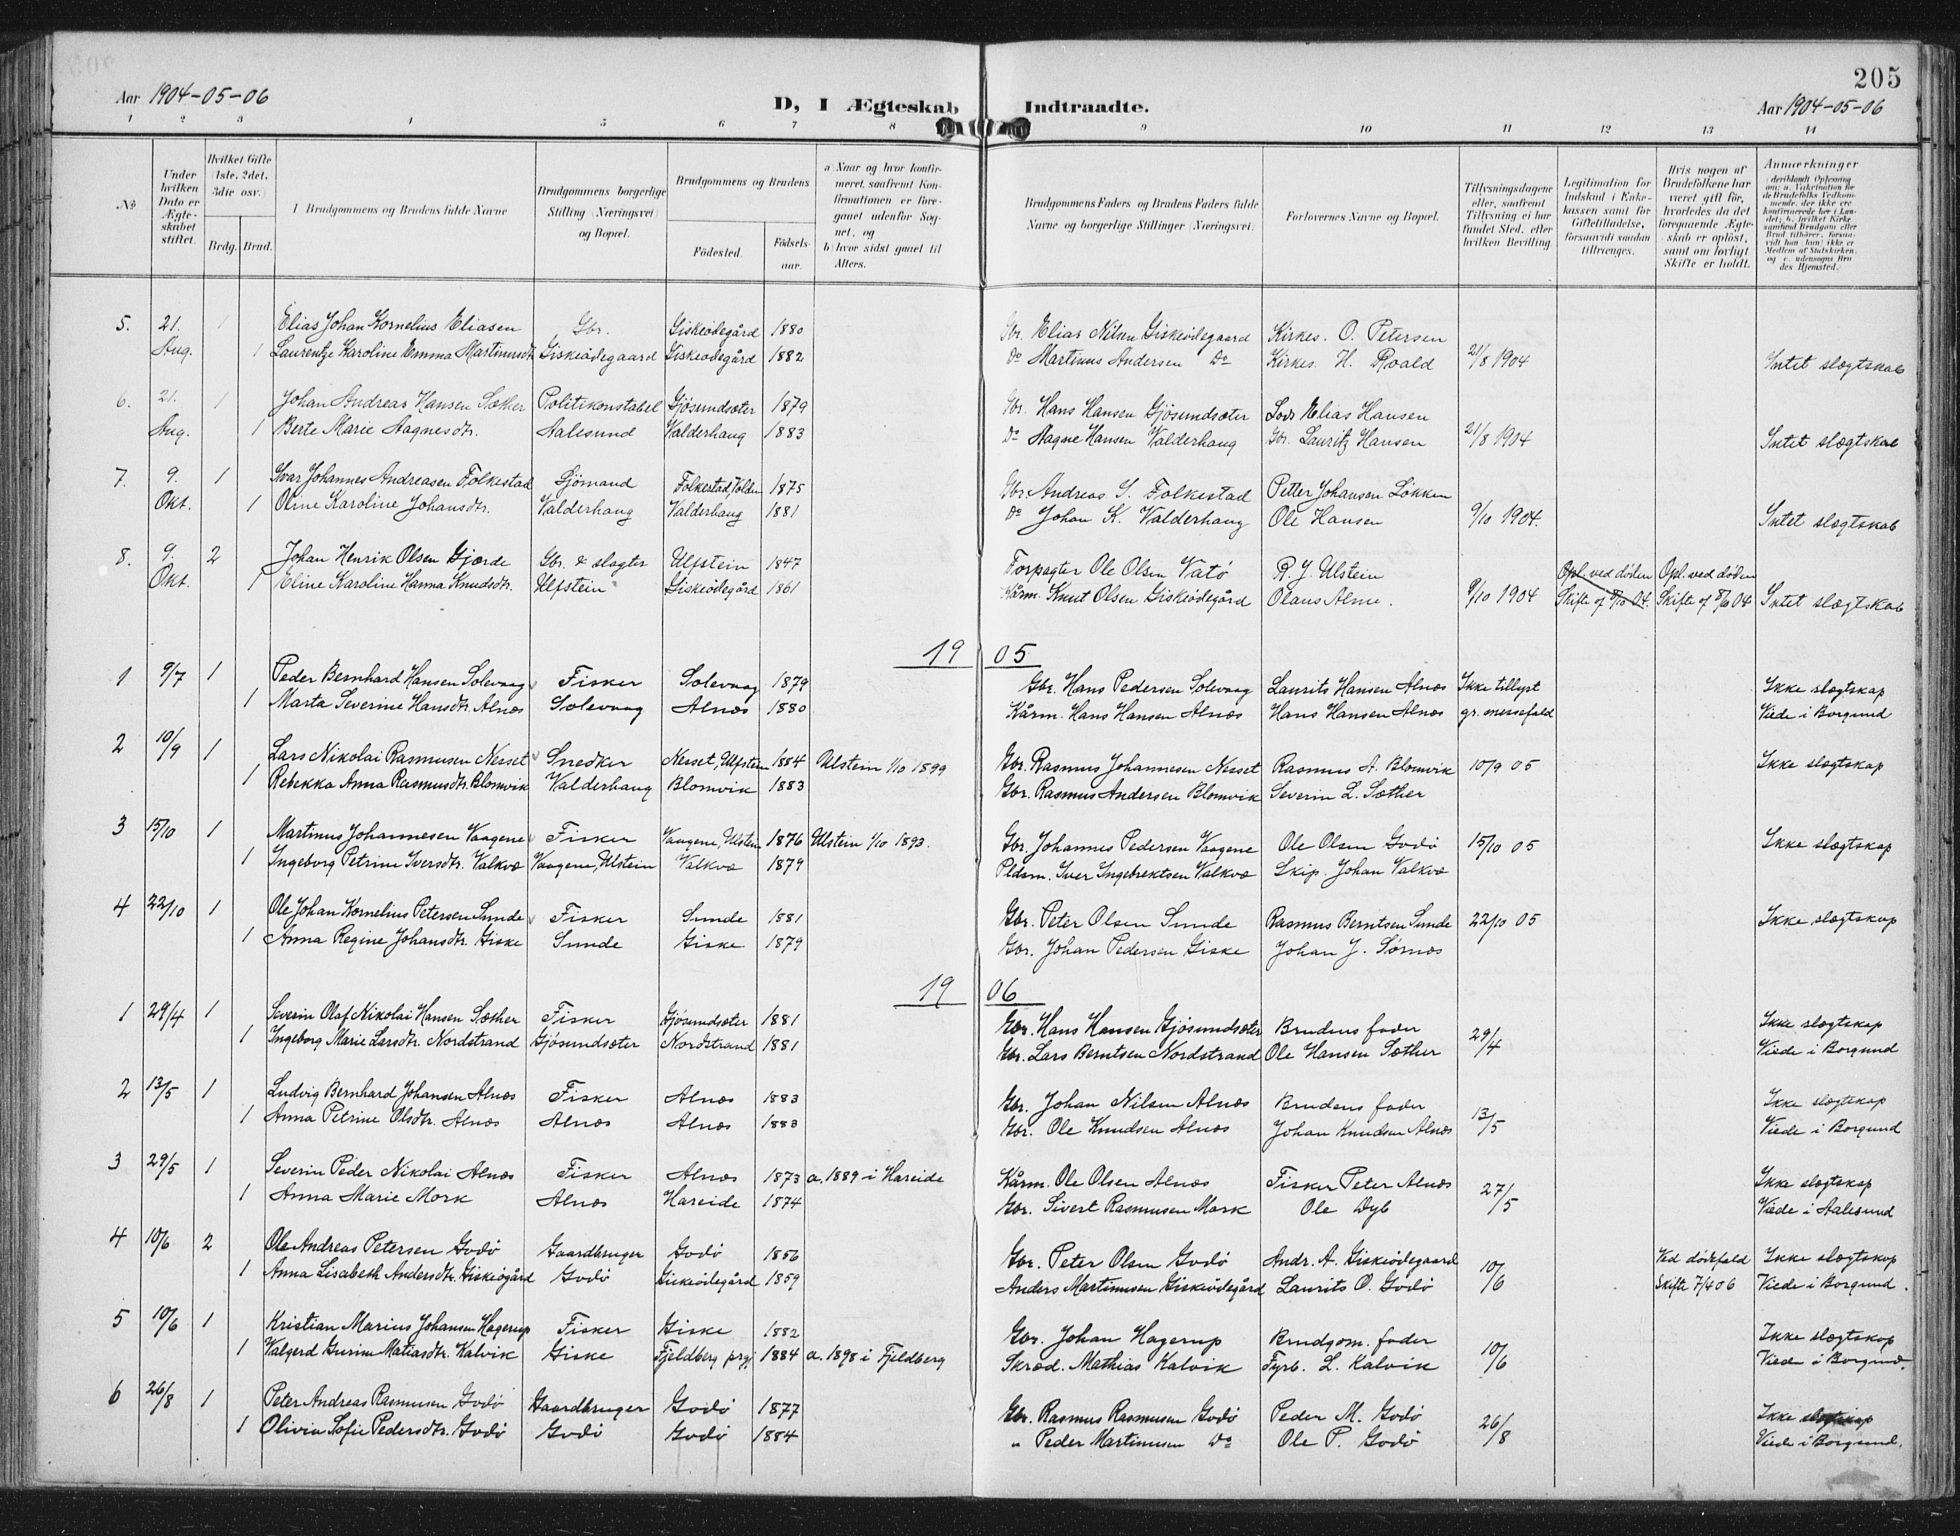 205
Aar 1904-05-06
D, I Ægteskab Indtraadte.
Aar 1904-05-06
1 2 3 4 5 6 7 8 9 10 11 12 13 14
No
Under hvilken Dato er Ægteskabet stiftet.
Hvilket Gifte (1ste, 2det, 3die osv.)
Brdg. Brud.
1 Brudgommens og Brudens fulde Navne
Brudgommens borgerlige Stilling (Næringsvei) og Bopæl.
Brudgommens og Brudens
Fødested. Fødselsaar.
a) Naar og hvor konfirmeret, saafremt Konfirmationen er foregaaet udenfor Sognet, og
b) hvor sidst gaaet til Alters.
Brudgommens Faders og Brudens Faders fulde Navne og borgerlige Stillinger (Næringsvei).
Forlovernes Navne og Bopæl.
Tillysningsdagene eller, saafremt Tillysning ei har fundet Sted, efter hvilken Bevilling.
Legitimation for Indskud i Enkekassen samt for Giftetilladelse, forsaavidt saadan tiltrænges.
Hvis nogen af Brudefolkene har været gift før, hvorledes da det foregaaende Ægteskab er opløst, samt om lovligt Skifte er holdt.
Anmærkninger
5. 21. 1 Elias Johan Kornelius Eliasen Gbr. Giskeødegård 1880 Gbr. Elias Nilsen Giskeødegaard Kirkes. O. Petersen
Aug. 1 Laurentze Karoline Emma Martinusdt. Giskeødegaard Giskeødegård 1882 Do Martinus Andersen Do Kirkes. H. Roald 21/8 1904 Intet slægtskab
6. 21. 1 Johan Andreas Hansen Sæther Politikonstabel Gjösundsæter 1879 Gbr. Hans Hansen Gjösundsæter Lods Elias Hansen
Aug. 1 Berte Marie Aagnesdtr. Aalesund Valderhaug 1883 Do Aagne Hansen Valderhaug Gbr. Lauritz Hansen 21/8 1904 Intet slægtskab
7. 9. 1 Ivar Johannes Andreasen Folkestad Sjömand Folkestad, Volden 1875 Gbr. Andreas S. Folkestad Petter Johansen Løkken
Okt. 1 Oline Karoline Johansdtr. Valderhaug Valderhaug 1881 Do Johan K. Valderhaug Ole Hansen 9/10 1904. Intet slægtskab
8. 9. 2 Johan Henrik Olsen Gjærde Gbr. & slagter Ulfstein 1847 Forpagter Ole Olsen Vatö R. J. Ulstein Opl. ved døden Opl. ved døden
Okt. 1 Eline Karoline Hanna Knudsdtr. Ulfstein Giskeödegård 1861 Kårm. Knut Olsen Giskeödegård Olaus Alme. 9/10 1904 Skifte of 8/10 04. Skifte of 8/10 04 Intet slægtskab
19 05
1 9/7 1 Peder Bernhard Hansen Solevaag Fisker Solevaag 1879 Gbr. Hans Pedersen Solevaag Laurits Hansen Alnæs Ikke tillyst Ikke slægtskap
1 Marta Severine Hansdtr. Alnæs Solevaag Alnæs 1880 Kårm. Hans Hansen Alnæs Hans Hansen Alnæs gr. messefald Viede i Borgund
2 10/9 1 Lars Nikolai Rasmusen Nesset Snedker Nesset, Ulfstein 1884 Ulstein 1/10 1899 Gbr. Rasmus Johannesen Nesset Rasmus A. Blomvik 10/9 05 Ikke slægtskap
1 Rebekka Anna Rasmusdtr. Blomvik Valderhaug Blomvik 1883 Gbr. Rasmus Andersen Blomvik Severin L. Sæther
3 15/10 1 Martinus Johannesen Vaagene Fisker Vaagene, Ulstein 1876 Ulstein 1/10 1893. Gbr. Johannes Pedersen Vaagene Ole Olsen Godø 15/10 05 Ikke slægtskap
1 Ingeborg Petrine Iversdtr. Valkvæ Vaagene, Ulstein Valkvæ 1879 Pldsm. Iver Ingebrektsen Valkvæ Skip. Johan Valkvæ
4 22/10 1 Ole Johan Kornelius Petersen Sunde Fisker Sunde 1881 Gbr. Peter Olsen Sunde Rasmus Berntsen Sunde 22/10 05 Ikke slægtskap
1 Anna Regine Johansdtr. Giske Sunde Giske 1879 Gbr. Johan Pedersen Giske Johan J. Sørnæs
19 06
1 29/4 1 Severin Olaf Nikolai Hansen Sæther Fisker Gjösundsæter 1881 Gbr. Hans Hansen Gjösundsæter Brudens fader Ikke slægtskap
1 Ingeborg Marie Larsdtr. Nordstrand Gjøsundsæter Nordstrand 1881 Gbr. Lars Berntsen Nordstrand Ole Hansen Sæther 29/4 Viede i Borgund
2 13/5 1 Ludvig Bernhard Johansen Alnæs Fisker Alnæs 1883 Gbr. Johan Nilsen Alnæs Brudens fader Ikke slægtskap
1 Anna Petrine Olsdtr. Alnæs Alnæs Alnæs 1883 Gbr. Ole Knudsen Alnæs Johan Knudsen Alnæs 13/5 Viede i Borgund
3 29/5 1 Severin Peder Nikolai Alnæs Fisker Alnæs 1873 a. 1889 i Hareide Kårm. Ole Olsen Alnæs Fisker Peter Alnæs Ikke slægtskap
1 Anna Marie Mork Alnæs Hareide 1874 Gbr. Sivert Rasmusen Mork Ole Dyb 27/5 Viede i Aalesund
4 10/6 2 Ole Andreas Petersen Godø Gaardbruger Godø 1856 Gbr. Peter Olsen Godø Andr. A. Giskeødegaard Ved dødsfald Ikke slægtskap
1 Anna Lisabeth Andersdtr. Giskeøgård Godø Giskeødegård 1859 Anders Martinusen Giskeødegård Laurits O. Godø 10/6 Skifte 7/4 06 Viede i Borgund.
5 10/6 1 Kristian Marius Johansen Hagerup Fisker Giske 1882 Gbr. Johan Hagerup Brudgom. fader Ikke slægtskap
1 Valgerd Gurine Matiasdtr. Kalvik Giske Fjeldberg prgj 1884 a. 1898 i Fjeldberg Skræd. Mathias Kalvik Fyrb. L. Kalvik 10/6 Viede i Borgund.
6 26/8 1 Peter Andreas Rasmusen Godø Gaardbruger Godø 1877 Gbr. Rasmus Rasmusen Godø Peder M. Godø Ikke slægtskap
1 Olivia Sofie Pedersdtr. Godø Godø Godø 1884 " Peder Martinusen Do Ole P. Godø 26/8 Viede i Borgund.